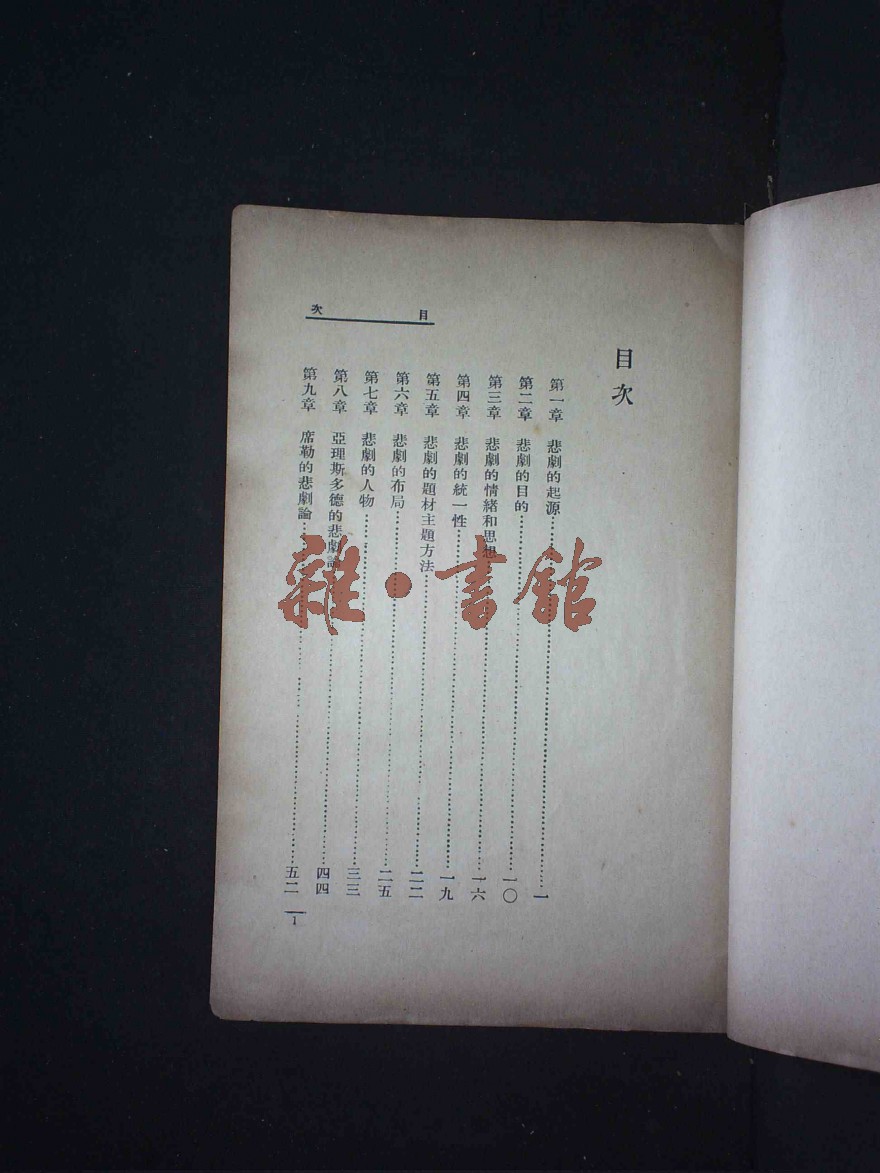 目次
目次
第一章 悲劇的起源……一
第二章 悲劇的目的……一〇
第三章 悲劇的情緒和思想……一六
第四章 悲劇的統一性……一九
第五章 悲劇的題材主題方法……二二
第六章 悲劇的布局……二五
第七章 悲劇的人物……三三
第八章 亞理斯多德的悲劇論……四四
第九章 席勒的悲劇論……五二
1
雜·書館